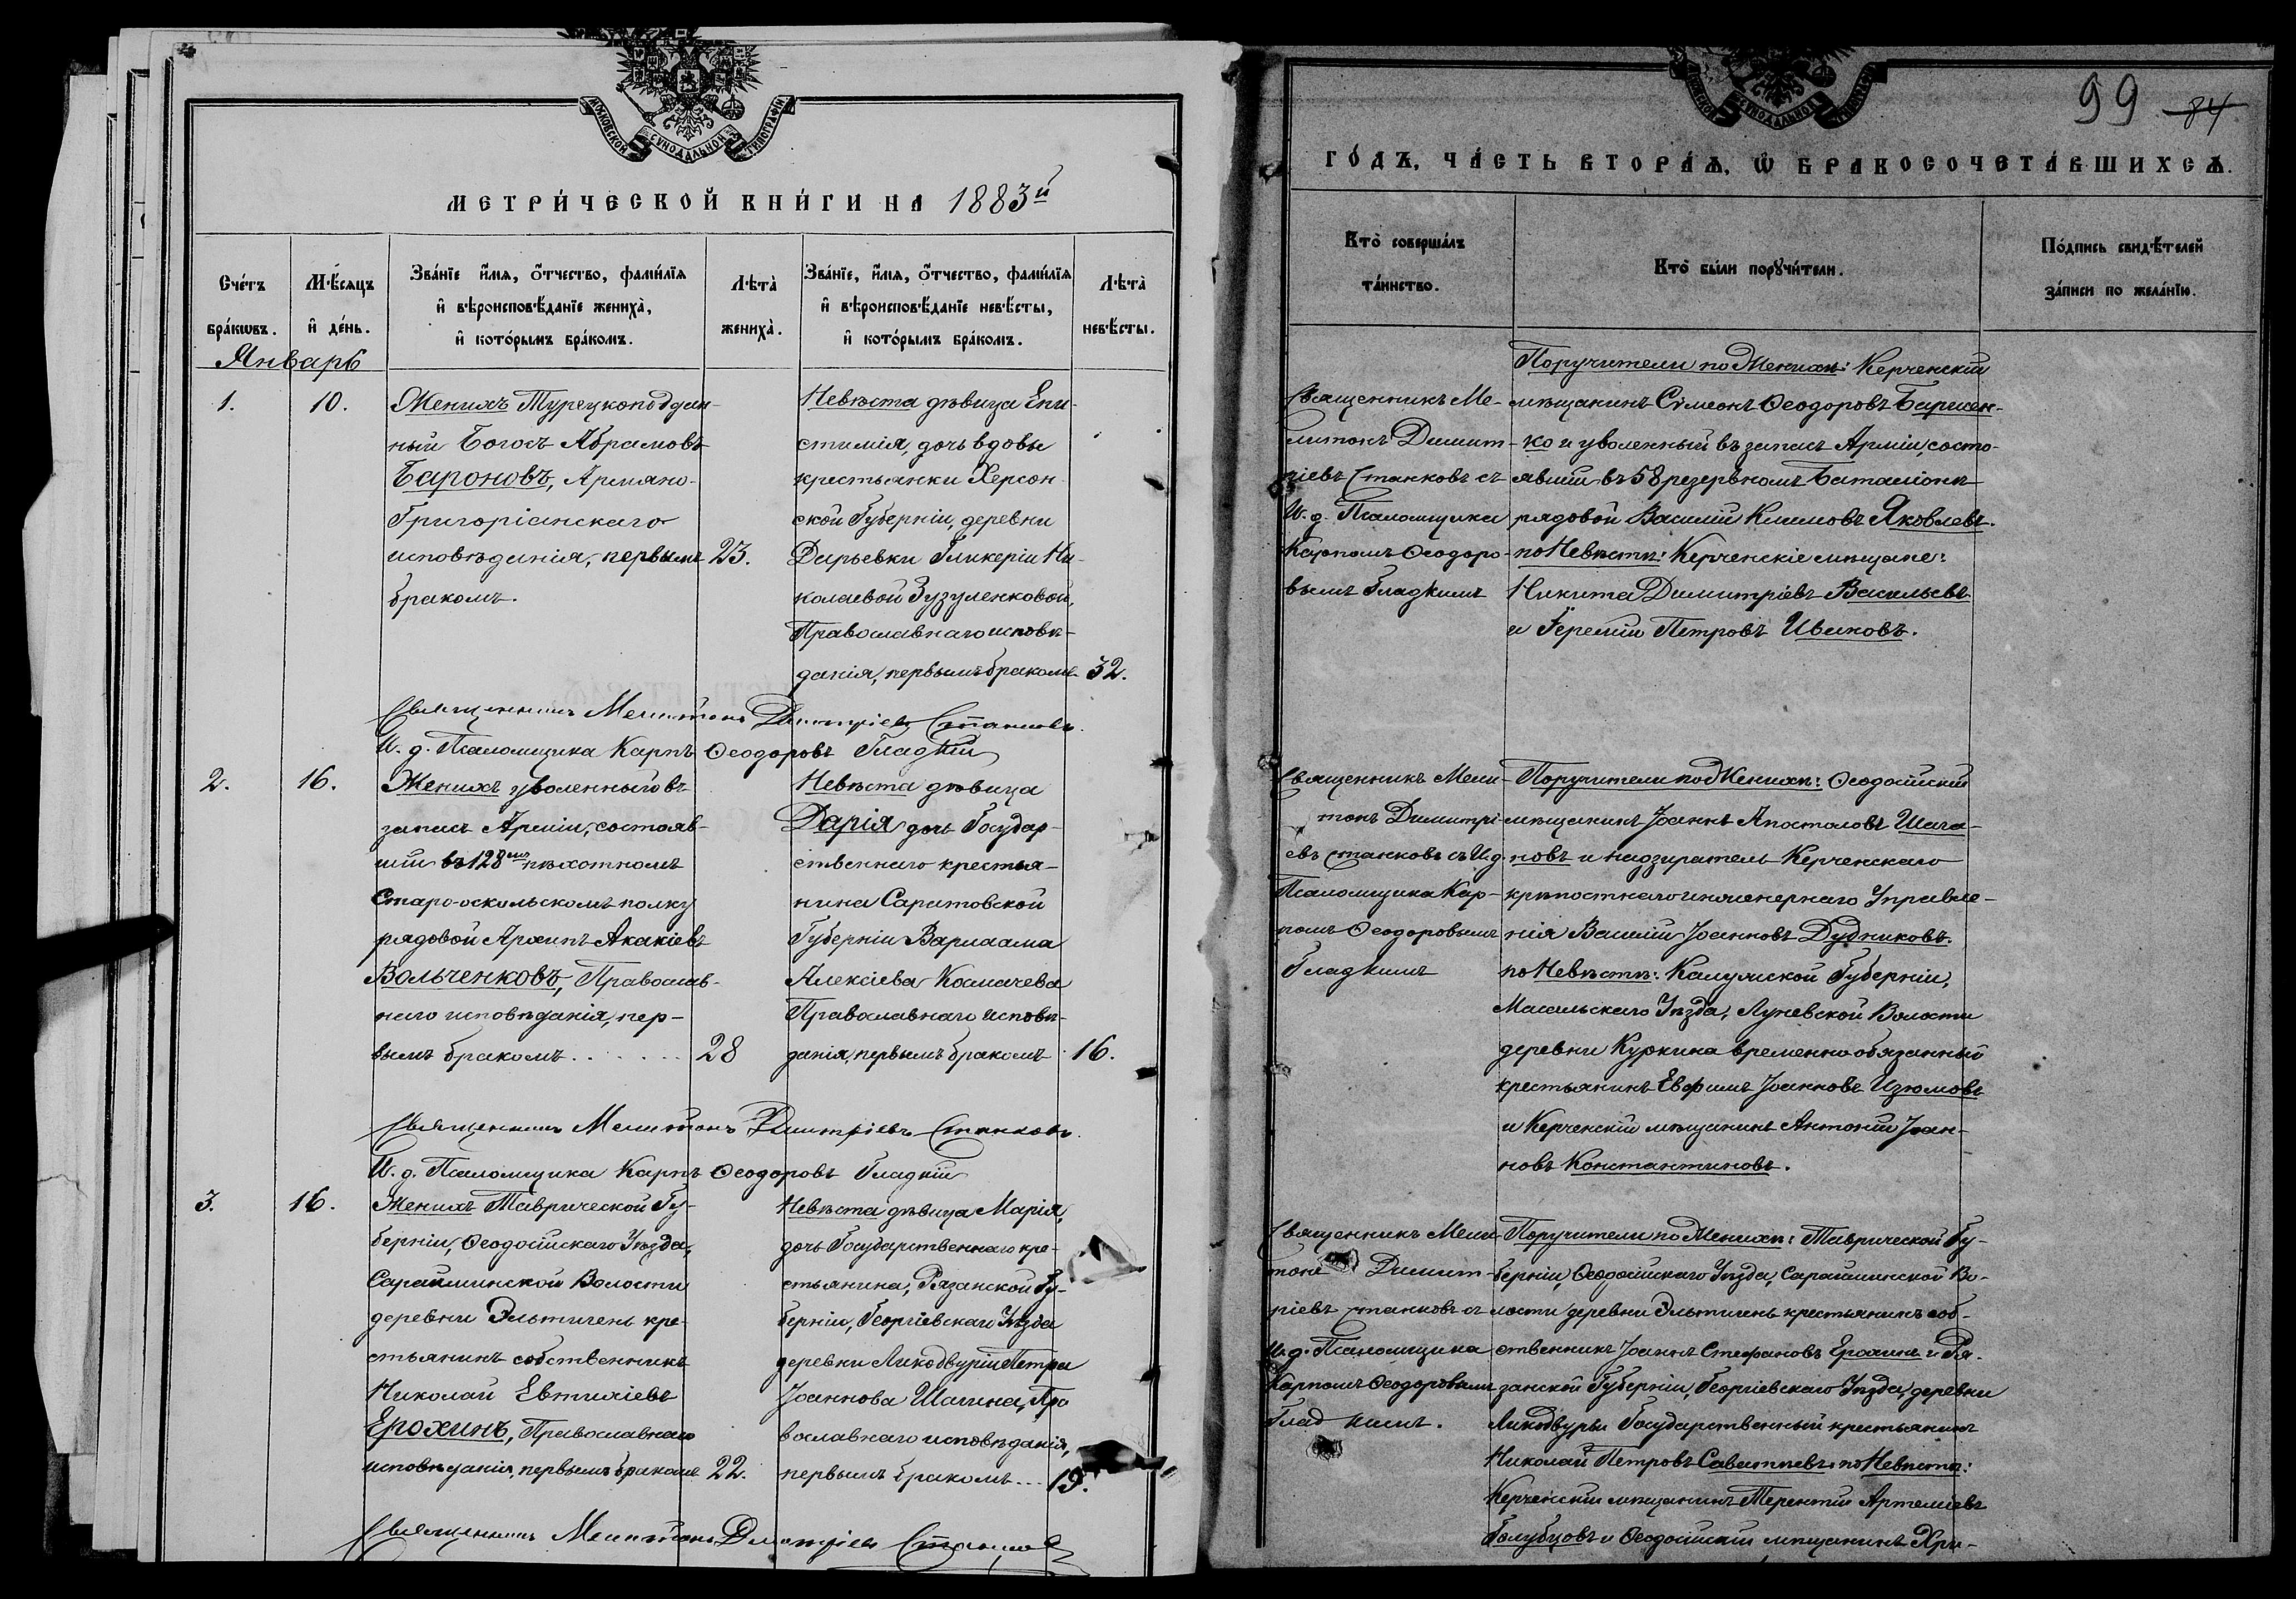 МОСКОВСКОЙ СѴНОДАЛЬНОЙ ТИПОГРАФІИ
МЕТРИ́ЧЕСКОЙ КНИ́ГИ НА 1883й
Сче́тъ
бра́кѡвъ.
Мѣ́сяцъ
и҆ де́нь.
Зва́нїе и҆́мя, ѻ҆́тчество, фами́лїя
и҆ вѣроисповѣ́данїе жениха̀,
и҆ кото́рымъ бра́комъ.
Лѣта̀
жениха̀.
Зва́нїе, и҆́мя, ѻ҆́тчество, фами́лїя
и҆ вѣроисповѣ́данїе невѣ́сты,
и҆ кото́рымъ бра́комъ.
Лѣта̀
невѣ́сты.
Январь
1.
10.
Женихъ Турецкоподдан-
ный Богосъ Абрамовъ
Бароновъ, Армяно-
Григоріанскаго
исповѣданія, первымъ
бракомъ.
23.
Невѣста дѣвица Епи-
стимія, дочь вдовы
крестьянки Херсон
ской Губерніи, деревни
Дарьевки Гликеріи Ни-
колаевой Зузуленковой,
Православнаго исповѣ-
данія, первымъ бракомъ
32.
Священникъ Мелитонъ Димитріевъ Станковъ.
И. д. Псаломщика Карпъ Ѳеодоровъ Гладкій
2.
16.
Женихъ уволенный въ
запасъ Арміи, состояв-
шій въ 128мъ пѣхотномъ
Старо-оскольскомъ полку
рядовой Архипъ Акакіевъ
Вольченковъ, Православ-
наго исповѣданія, пер-
вымъ бракомъ.......
28
Невѣста дѣвица
Дарія дочь Государ-
ственнаго крестья-
нина Саратовской
Губерніи Варлаама
Алексіева Космачева
Православнаго исповѣ-
данія, первымъ бракомъ
16.
Священникъ Мелитонъ Димитріевъ Станковъ.
И. д. Псаломщика Карпъ Ѳеодоровъ Гладкій
3.
16.
Женихъ Таврической Гу-
берніи, Ѳеодосійскаго Уѣзда,
Сарайминской Волости
деревни Эльтигень кре-
стьянинъ собственникъ
Николай Евтихіевъ
Ерохинъ, Православнаго
исповѣданія, первымъ бракомъ
22.
Невѣста дѣвица Марія,
дочь Государственнаго кре-
стьянина, Рязанской Гу-
берніи, Георгіевскаго Уѣзда
деревни Петра
Іоаннова Шагина, Пра
вославнаго исповѣданія,
первымъ бракомъ...
19.
Священникъ Мелитонъ Димитріевъ Станковъ
99 84
ГО́ДЪ, ЧА́СТЬ ВТОРА́Ѧ, Ѡ҆ БРАКОСОЧЕТА́ВШИХСѦ.
Кто̀ соверша́лъ
та́инство.
Кто̀ бы́ли порꙋчи́тели.
По́дпись свидѣ́телей
за́писи по жела́нїю.
Священникъ Ме-
литонъ Димит-
ріевъ Станковъ съ
И. д. Псаломщика
Карпомъ Ѳеодоро-
вымъ Гладкимъ
Поручители по Женихѣ: Керченскій
мѣщанинъ Сѵмеонъ Ѳеодоровъ Бармен-
ко и уволенный въ запасъ Арміи, состо-
явшій въ 58 резервномъ Баталіонѣ
рядовой Василій Климовъ Яковлевъ.
по Невѣстѣ: Керченскіе мѣщане:
Никита Димитріевъ Васильевъ
и Іеремій Петровъ Ивановъ.
Священникъ Мели-
тонъ Димитрі-
евъ Станковъ съ И.д.
Псаломщика Кар-
помъ Ѳеодоровымъ
Гладкимъ
Поручители по Женихѣ: Ѳеодосійскій
мѣщанинъ Іоаннъ Апостоловъ Шага-
новъ и надзиратель Керченскаго
крѣпостнаго инженернаго Управле-
нія Василій Іоанновъ Дудниковъ.
по Невѣстѣ: Калужской Губерніи,
Масальскаго Уѣзда, Луневской Волости
деревни Куркина временно обязанный
крестьянинъ Евфимъ Іоанновъ Изюмовъ
и Керченскій мѣщанинъ Антоній Іоан-
новъ Константиновъ.
Священникъ Мели
тонъ Димит-
ріевъ Станковъ съ
И. д. Псаломщика
Карпомъ Ѳеодоровымъ
Глад кимъ.
Поручители по Женихѣ: Таврической Гу-
берніи, Ѳеодосійскаго Уѣзда, Сарайминской Во-
лости деревни Эльтигень крестьянинъ соб-
ственникъ Іоаннъ Стефановъ Ерохинъ и Ря-
занской Губерніи, Георгіевскаго Уѣзда, деревни
Государственный крестьянинъ
Николай Петровъ Савантьевъ, по Невѣстѣ:
Керченскій мѣщанинъ Терентій Артеміевъ
Голубцовъ и Ѳеодосійскій мѣщанинъ Хри-